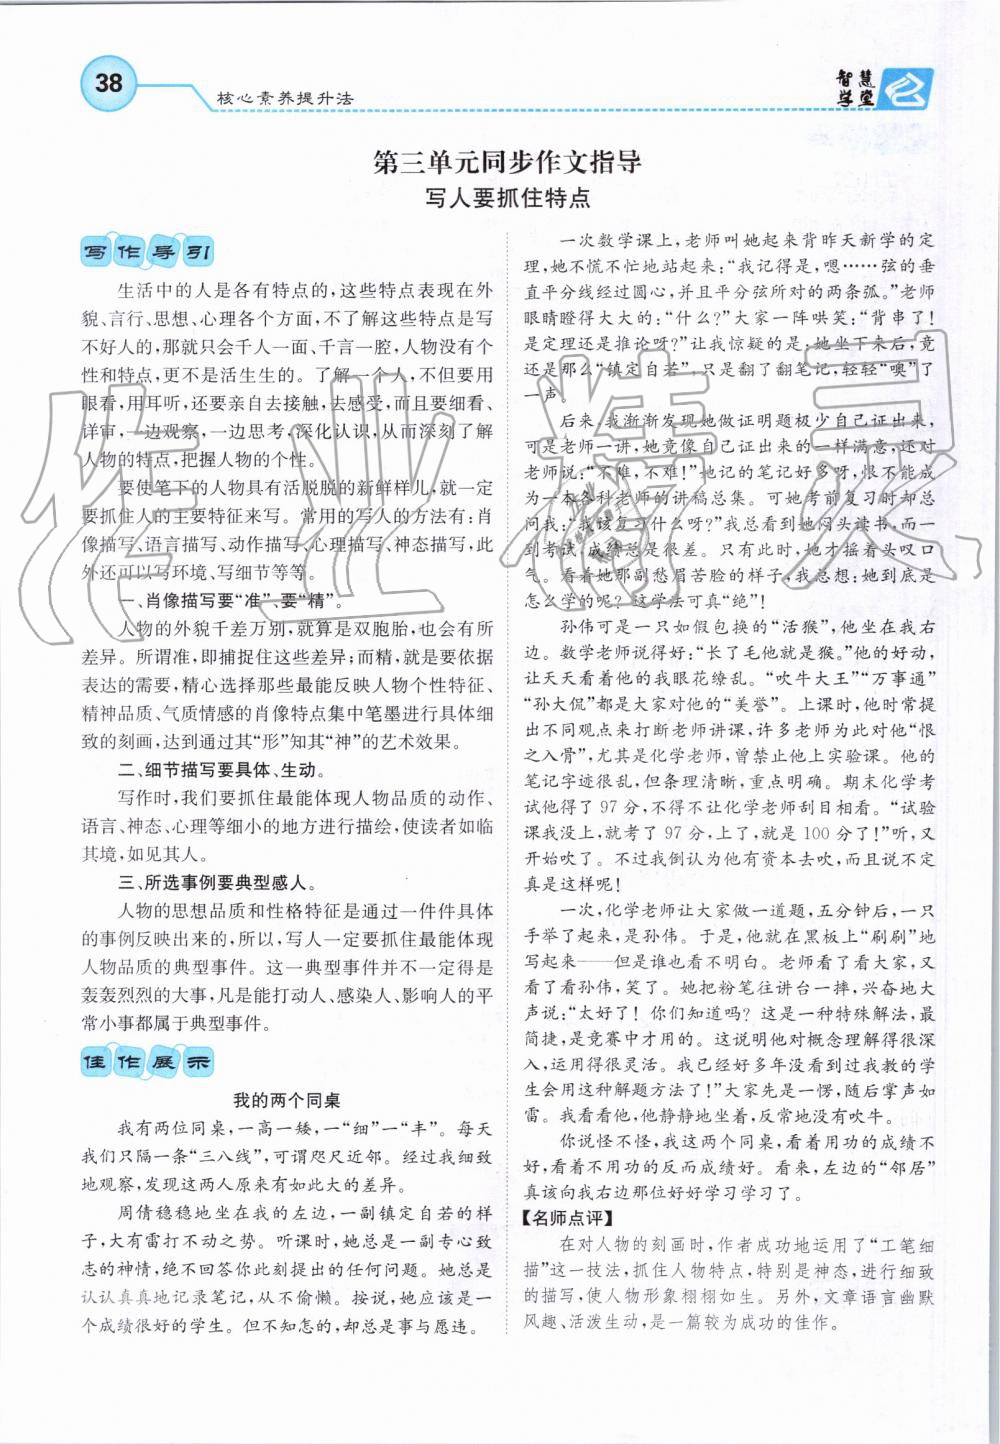 38
核心素养提升法
智慧
学堂
第三单元同步作文指导
写人要抓住特点
写作导引
生活中的人是各有特点的,这些特点表现在外
貌、言行、思想、心理各个方面,不了解这些特点是写
不好人的,那就只会千人一面、千言一腔,人物没有个
性和特点,更不是活生生的。了解一个人,不但要用
眼看,用耳听,还要亲自去接触,去感受,而且要细看、
详审,一边观察,一边思考,深化认识,从而深刻了解
人物的特点,把握人物的个性。
要使笔下的人物具有活脱脱的新鲜样儿,就一定
要抓住人的主要特征来写。常用的写人的方法有:肖
像描写、语言描写、动作描写、心理描写、神态描写,此
外还可以写环境、写细节等等。
一、肖像描写要“准”、要“精”。
人物的外貌千差万别,就算是双胞胎,也会有所
差异。所谓准,即捕捉住这些差异;而精,就是要依据
表达的需要,精心选择那些最能反映人物个性特征、
精神品质、气质情感的肖像特点集中笔墨进行具体细
致的刻画,达到通过其“形”知其“神”的艺术效果。
二、细节描写要具体、生动。
写作时,我们要抓住最能体现人物品质的动作、
语言、神态、心理等细小的地方进行描绘,使读者如临
其境,如见其人。
三、所选事例要典型感人。
人物的思想品质和性格特征是通过一件件具体
的事例反映出来的,所以,写人一定要抓住最能体现
人物品质的典型事件。这一典型事件并不一定得是
轰轰烈烈的大事,凡是能打动人、感染人、影响人的平
常小事都属于典型事件。
佳作展示
我的两个同桌
我有两位同桌,一高一矮,一“细”一“丰”。每天
我们只隔一条“三八线”,可谓咫尺近邻。经过我细致
地观察,发现这两人原来有如此大的差异。
周倩稳稳地坐在我的左边,一副镇定自若的样
子,大有雷打不动之势。听课时,她总是一副专心致
志的神情,绝不回答你此刻提出的任何问题。她总是
认认真真地记录笔记,从不偷懒。按说,她应该是一
个成绩很好的学生。但不知怎的,却总是事与愿违。
一次数学课上,老师叫她起来背昨天新学的定
理,她不慌不忙地站起来:“我记得是,嗯……弦的垂
直平分线经过圆心,并且平分弦所对的两条弧。”老师
眼睛瞪得大大的:“什么?”大家一阵哄笑:“背串了!
是定理还是推论呀?”让我惊疑的是:她坐下来后,竟
还是那么“镇定自若”,只是翻了翻笔记,轻轻“噢”了
一声。
后来,我渐渐发现她做证明题极少自己证出来,
可是老师一讲,她竟像自己证出来的一样满意,还对
老师说:“不难,不难!”她记的笔记好多呀,恨不能成
为一本各科老师的讲稿总集。可她考前复习时却总
问我:“我该复习什么呀?”我总看到她闷头读书,而一
到考试,成绩总是很差。只有此时,她才摇着头叹口
气。看着她那副愁眉苦脸的样子,我总想:她到底是
怎么学的呢?这学法可真“绝”!
孙伟可是一只如假包换的“活猴”,他坐在我右
边。数学老师说得好:“长了毛他就是猴。”他的好动,
让天天看着他的我眼花缭乱。“吹牛大王”“万事通”
“孙大侃”都是大家对他的“美誉”。上课时,他时常提
出不同观点来打断老师讲课,许多老师为此对他“恨
之入骨”,尤其是化学老师,曾禁止他上实验课。他的
笔记字迹很乱,但条理清晰,重点明确。期末化学考
试他得了97分,不得不让化学老师刮目相看。“试验
课我没上,就考了97分,上了,就是100分了!”听,又
开始吹了。不过我倒认为他有资本去吹,而且说不定
真是这样呢!
一次,化学老师让大家做一道题,五分钟后,一只
手举了起来,是孙伟。于是,他就在黑板上“刷刷”地
写起来——但是谁也看不明白。老师看了看大家,又
看了看孙伟,笑了。她把粉笔往讲台一摔,兴奋地大
声说:“太好了!你们知道吗?这是一种特殊解法,最
简捷,是竞赛中才用的。这说明他对概念理解得很深
入,运用得很灵活。我已经好多年没看到过我教的学
生会用这种解题方法了!”大家先是一愣,随后掌声如
雷。我看看他,他静静地坐着,反常地没有吹牛。
你说怪不怪,我这两个同桌,看着用功的成绩不
好,看着不用功的反而成绩好。看来,左边的“邻居”
真该向我右边那位好好学习学习了。
【名师点评】
在对人物的刻画时,作者成功地运用了“工笔细
描”这一技法,抓住人物特点,特别是神态,进行细致
的描写,使人物形象栩栩如生。另外,文章语言幽默
风趣、活泼生动,是一篇较为成功的佳作。
作业精灵